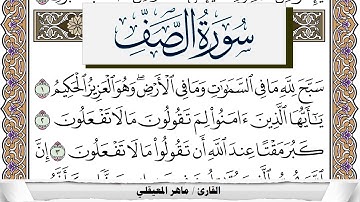 سُورَةُ الصَّفِّ
سَبَّحَ لِلَّهِ مَا فِي السَّمَوَاتِ وَمَا فِي الْأَرْضِ وَهُوَ الْعَزِيزُ الْحَكِيمُ ١
يَا أَيُّهَا الَّذِينَ ءَامَنُوا لِمَ تَقُولُونَ مَا لَا تَفْعَلُونَ ٢
كَبُرَ مَقْتًا عِندَ اللَّهِ أَن تَقُولُوا مَا لَا تَفْعَلُونَ ٣ إِنَّ
القارئ / ماهر المعيقلي